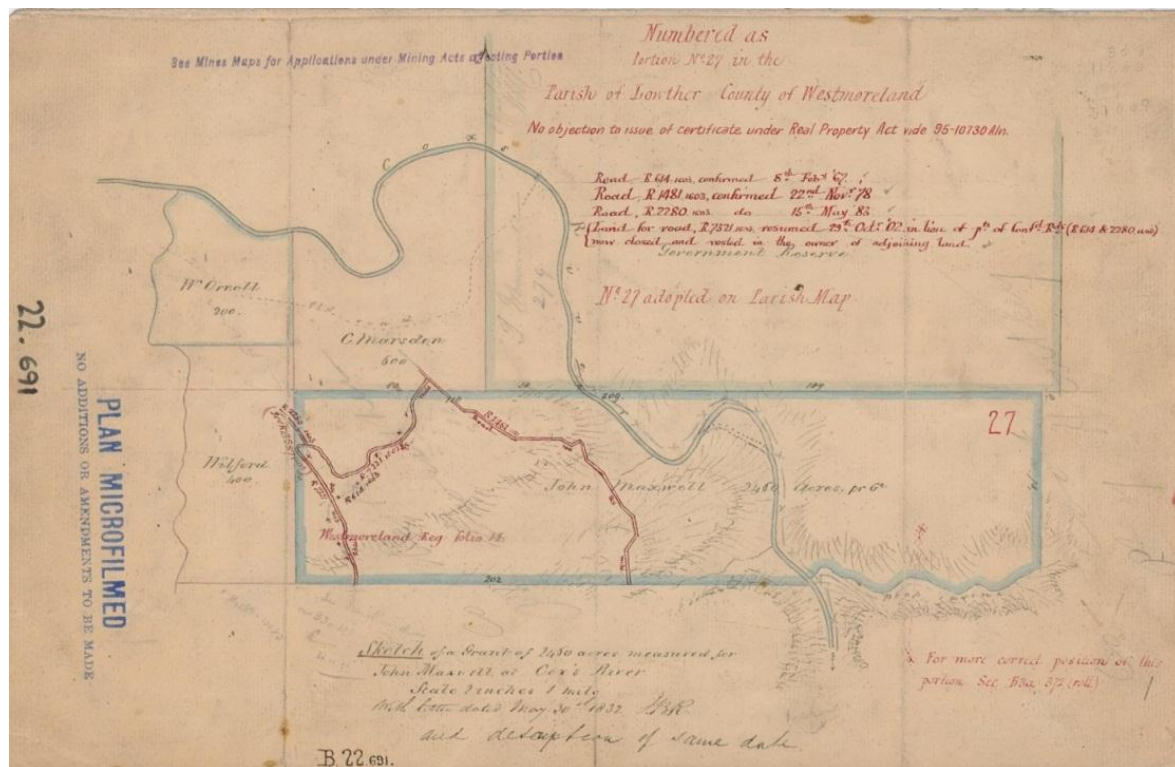 See Mines Maps for Applications under Mining Acts affecting Porties
Numbered as
Portion No 27 in the
Parish of Lowther County of Westmoreland
No objection to issue of certificate under Real Property Act vide 95-10730 Aln.
Road R.614.1603, confirmed 8th Feby 67.
Road, R.1481.1603, confirmed 22nd Novr 78
Road, R.2280.1603. do 15th May 83
Land for road, R.7521.1603, resumed 29th Octr 02 in lieu of pts of Confd Rds (R.614 & 2280.1603)
now closed and vested in the owner of adjoining land.
Government Reserve
No 27 adopted on Parish Map
279
W. Orrell
200.
C. Marsden
600
Wilford
400.
209
109
27
R.1481
Road
John Maxwell 2450 Acres, pr Gt
Westmoreland Reg. folio 14
202
Sketch of a Grant of 2450 acres measured for
John Maxwell at Cox's River
Scale 2 inches 1 mile
With letter dated May 30th 1832
and description of same date.
For more correct position of this
portion See
B.22.691.
22.691
PLAN MICROFILMED
NO ADDITIONS OR AMENDMENTS TO BE MADE